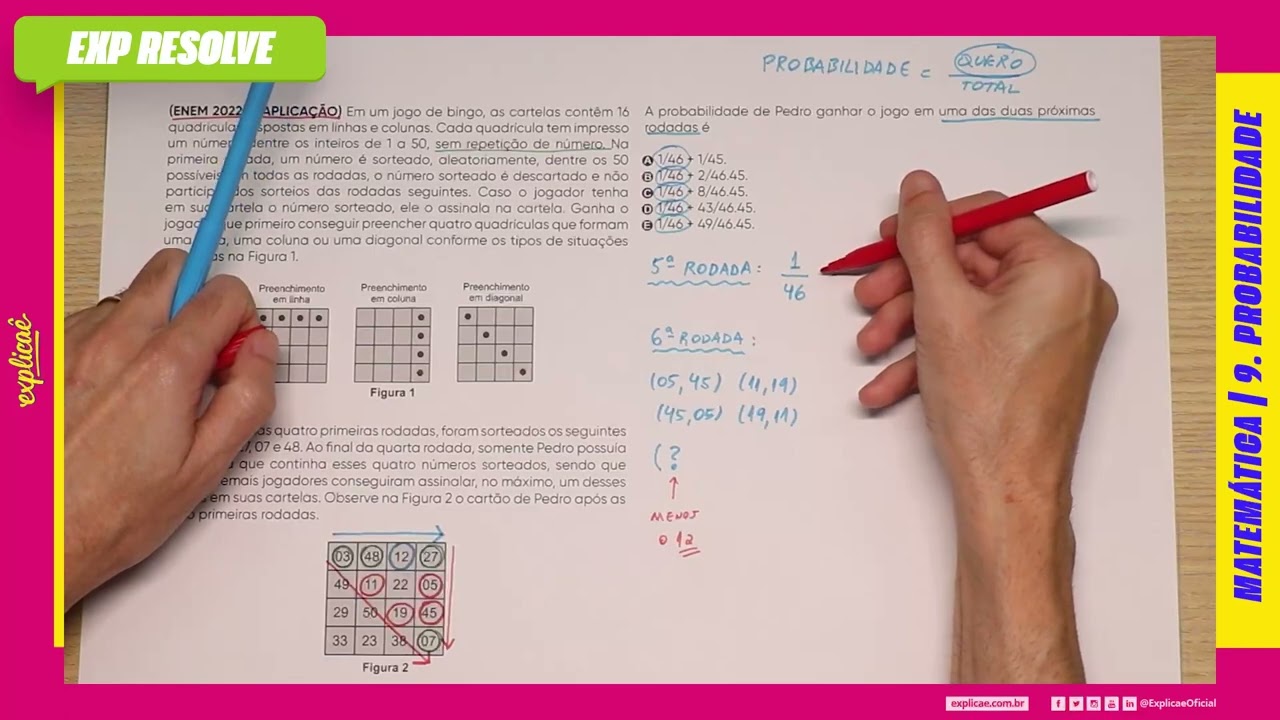 EXP RESOLVE
PROBABILIDADE = QUERO
TOTAL
(ENEM 2022 APLICAÇÃO) Em um jogo de bingo, as cartelas contêm 16
quadrícula spostas em linhas e colunas. Cada quadrícula tem impresso
um númer dentre os inteiros de 1 a 50, sem repetição de número. Na
primeira ada, um número é sorteado, aleatoriamente, dentre os 50
possíveis m todas as rodadas, o número sorteado é descartado e não
particip dos sorteios das rodadas seguintes. Caso o jogador tenha
em su artela o número sorteado, ele o assinala na cartela. Ganha o
joga que primeiro conseguir preencher quatro quadrículas que formam
uma a, uma coluna ou uma diagonal conforme os tipos de situações
as na Figura 1.
Preenchimento
em linha
Preenchimento
em coluna
Preenchimento
em diagonal
Figura 1
as quatro primeiras rodadas, foram sorteados os seguintes
7, 07 e 48. Ao final da quarta rodada, somente Pedro possuía
que continha esses quatro números sorteados, sendo que
emais jogadores conseguiram assinalar, no máximo, um desses
em suas cartelas. Observe na Figura 2 o cartão de Pedro após as
primeiras rodadas.
03 48 12 27
49 11 22 05
29 50 19 45
33 23 38 07
Figura 2
A probabilidade de Pedro ganhar o jogo em uma das duas próximas
rodadas é
A 1/46 + 1/45.
B 1/46 + 2/46.45.
C 1/46 + 8/46.45.
D 1/46 + 43/46.45.
E 1/46 + 49/46.45.
5ª RODADA: 1
46
6ª RODADA:
(05,45) (11,19)
(45,05) (19,11)
( ?
MENOS
o 12
explicaê
MATEMÁTICA | 9. PROBABILIDADE
explicae.com.br
@ExplicaeOficial